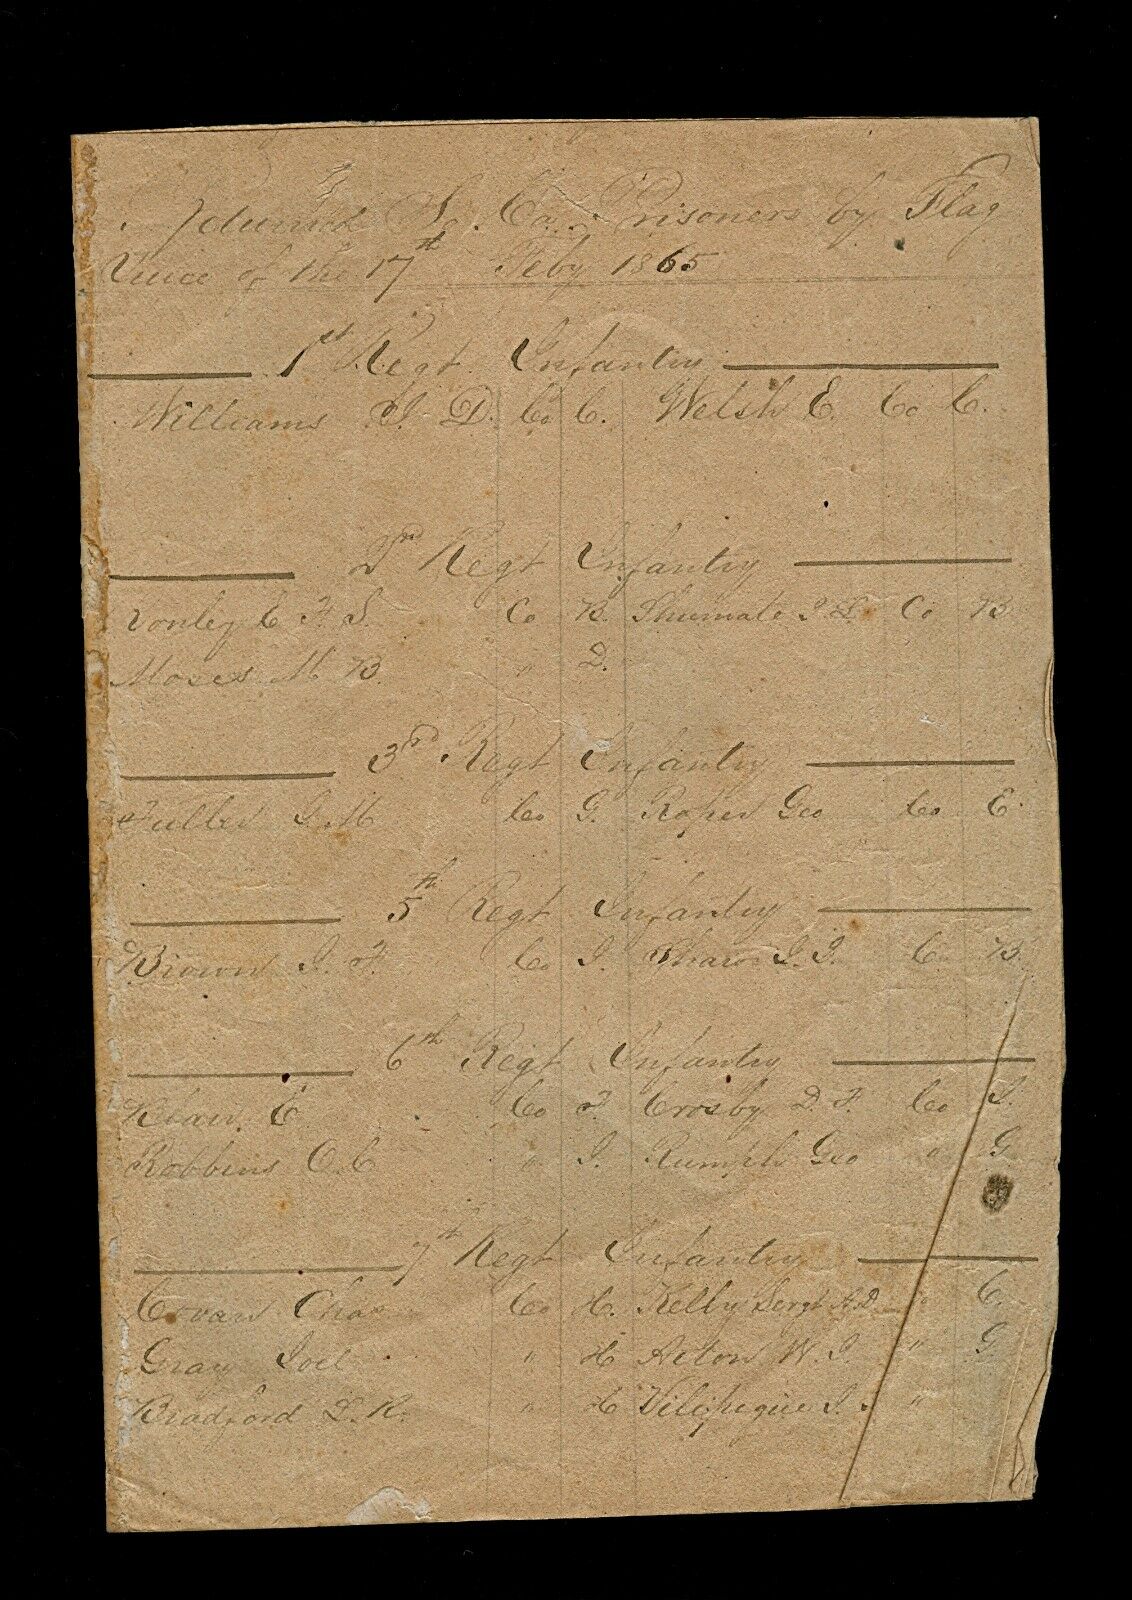 So. Ca. Prisoners by Flag
Truce of the 17th Feby 1865
1st Regt Infantry
Williams J. D. Co C. Welsh E. Co C.
2nd Regt Infantry
C F S. Co K. Shumate J L. Co K
Moses M B. " D.
3rd Regt Infantry
Fuller J. M Co G. Roper Geo Co E.
5th Regt Infantry
Brown J. F. Co I. J. J. Co K.
6th Regt Infantry
E Co F. Crosby D. F. Co I.
Robbins O. C " I. Rumph Geo " G
7th Regt Infantry
Chas Co H. Kelly Sergt " C.
Gray Joel " H W. J " G
Bradford L. R. " H J. "